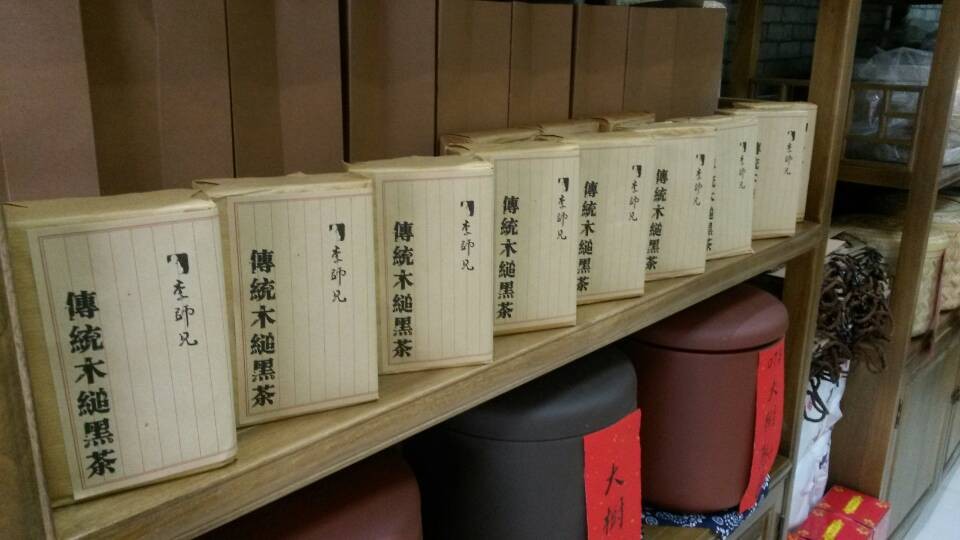 李師兄
傳統木縋黑茶
李師兄
傳統木縋黑茶
李師兄
傳統木縋黑茶
李師兄
傳統木縋黑茶
李師兄
傳統木縋黑茶
李師兄
傳統木縋黑茶
李師兄
木縋黑茶
李師兄
大樹
大樹